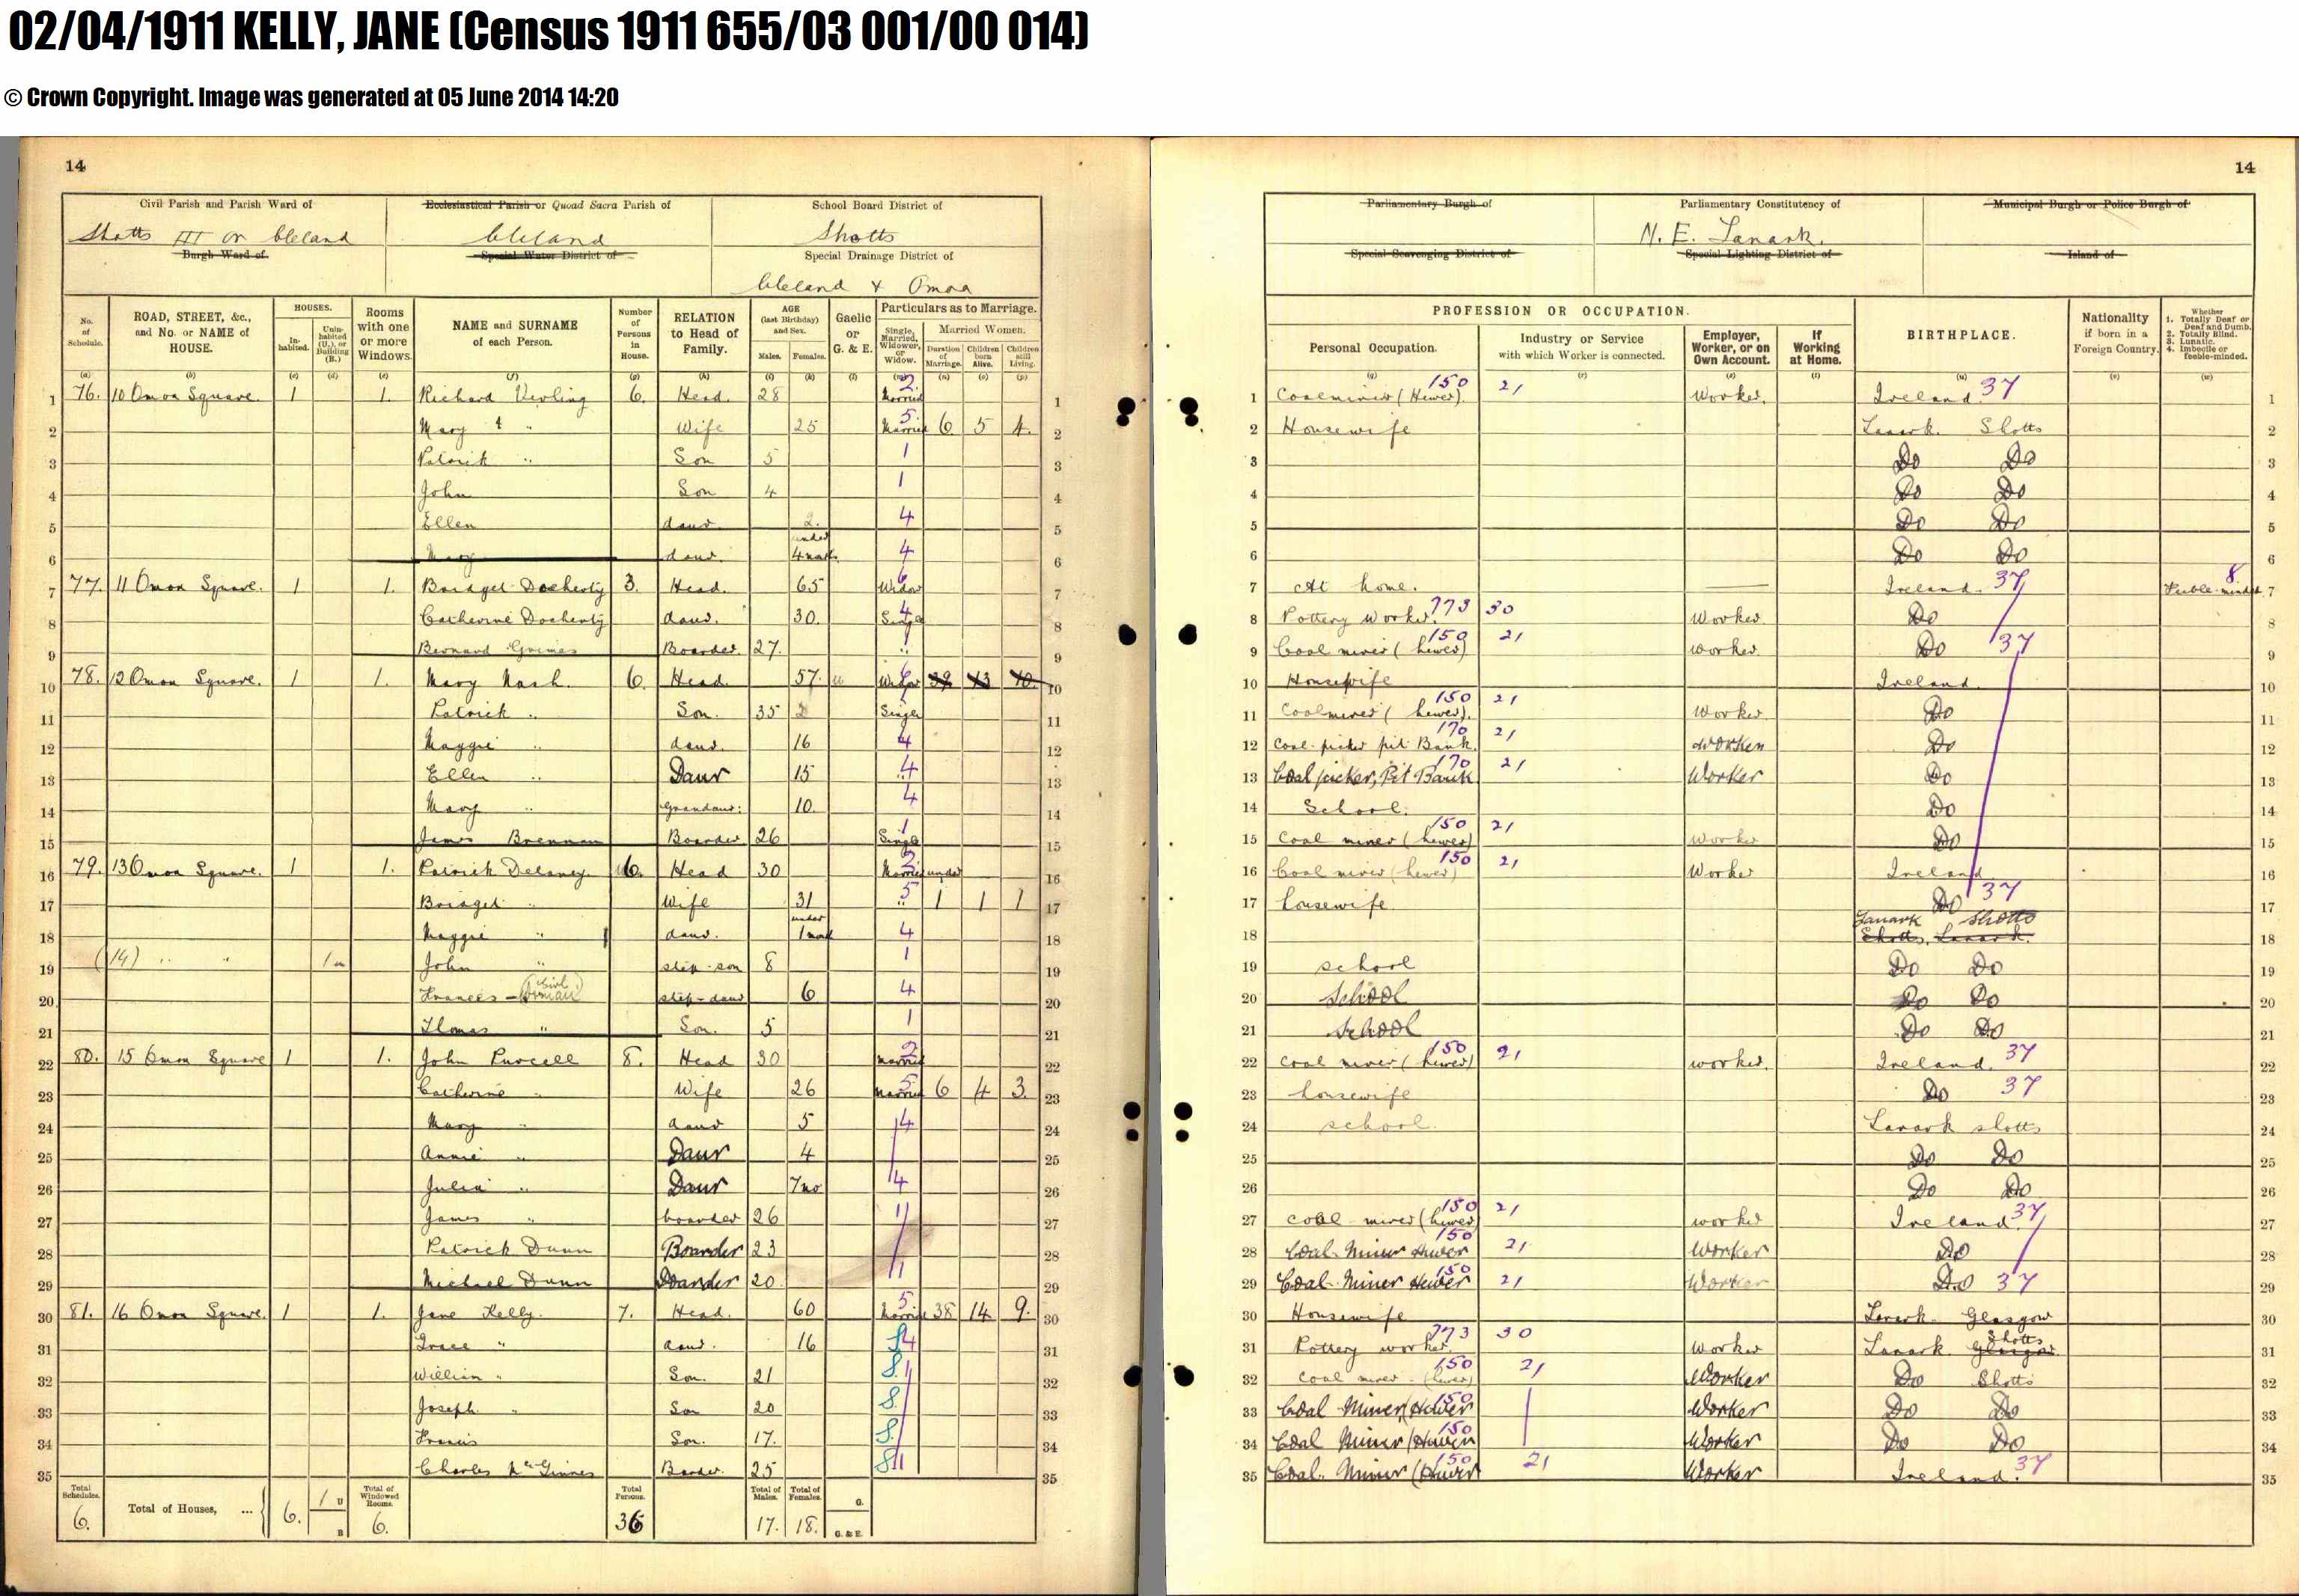 02/04/1911 KELLY, JANE (Census 1911 655/03 001/00 014)
© Crown Copyright. Image was generated at 05 June 2014 14:20
14
Civil Parish and Parish Ward of
Shotts III or Cleland
Burgh Ward of
Ecclesiastical Parish or Quoad Sacra Parish of
Cleland
Special Water District of
School Board District of
Shotts
Special Drainage District of
Cleland & Omoa
No. of Schedule.
ROAD, STREET, &c., and No. or NAME of HOUSE.
HOUSES.
Inhabited.
Uninhabited (U.), or Building (B.)
Rooms with one or more Windows.
NAME and SURNAME of each Person.
Number of Persons in House.
RELATION to Head of Family.
AGE (last Birthday) and Sex.
Males. Females.
Gaelic or G. & E.
Particulars as to Marriage.
Single, Married, Widower, or Widow.
Married Women.
Duration of Marriage. Children born Alive. Children still Living.
1 76. 10 Omoa Square. 1 1. Richard Verling 6. Head. 28 Married 2 1
2 Mary " Wife 25 Married 5 6 5 4. 2
3 Patrick " Son 5 1 3
4 John Son 4 1 4
5 Ellen daur. 2. 4 5
6 Mary daur. under 4 4 6
7 77. 11 Omoa Square. 1 1. Bridget Docherty 3. Head. 65 Widow 6 7
8 Catherine Docherty daur. 30. Single 4 8
9 Bernard Grimes Boarder. 27. " 1 9
10 78. 12 Omoa Square. 1 1. Mary Nash. 6. Head. 57. Widow 6 39 13 10. 10
11 Patrick " Son. 35 Single 11
12 Maggie " daur. 16 4 12
13 Ellen " Daur 15 4 13
14 Mary " Grandaur: 10. 4 14
15 James Brennan Boarder 26 Single 1 15
16 79. 13 Omoa Square. 1 1. Patrick Delaney. 6. Head 30 Married 2 under 16
17 Bridget " Wife 31 " 5 1 1 1 17
18 Maggie " daur. under 1 4 18
19 (14) " " 1u John " step-son 8 1 19
20 Frances step-daur 6 4 20
21 Thomas " Son. 5 1 21
22 80. 15 Omoa Square 1 1. John Purcell 8. Head 30 Married 2 22
23 Catherine " Wife 26 Married 5 6 4 3. 23
24 Mary " daur 5 4 24
25 Annie " Daur 4 25
26 Julia " Daur 7mo 4 26
27 James " boarder 26 1 27
28 Patrick Dunn Boarder 23 28
29 Michael Dunn Boarder 20. 1 29
30 81. 16 Omoa Square. 1 1. Jane Kelly. 7. Head. 60 Married 5 38 14 9. 30
31 Grace " daur. 16 S 4 31
32 William " Son. 21 S. 1 32
33 Joseph " Son 20 S. 33
34 Francis Son. 17. S. 34
35 Charles McGinnes Boarder. 25 S 1 35
Total Schedules. 6.
Total of Houses, ... 6. 1 U B
Total of Windowed Rooms. 6.
Total Persons. 36
Total of Males. 17.
Total of Females. 18.
G.
G. & E.
14
Parliamentary Burgh of
Special Scavenging District of
Parliamentary Constitutency of
N. E. Lanark.
Special Lighting District of
Municipal Burgh or Police Burgh of
Island of
PROFESSION OR OCCUPATION.
Personal Occupation.
Industry or Service with which Worker is connected.
Employer, Worker, or on Own Account.
If Working at Home.
BIRTHPLACE.
Nationality if born in a Foreign Country.
Whether 1. Totally Deaf or Deaf and Dumb. 2. Totally Blind. 3. Lunatic. 4. Imbecile or feeble-minded.
1 Coalminer (Hewer). 150 21 Worker. Ireland. 37 1
2 Housewife Lanark. Shotts 2
3 Do Do 3
4 Do Do 4
5 Do Do 5
6 Do Do 6
7 At home. Ireland. 37 8. 7
8 Pottery Worker. 773 30 Worker Do 8
9 Coal miner (hewer) 150 21 Worker. Do 37 9
10 Housewife Ireland. 10
11 Coalminer (hewer). 150 21 Worker. Do 11
12 Coal picker pit Bank. 170 21 Worker Do 12
13 Coal picker, Pit Bank 170 21 Worker Do 13
14 School. Do 14
15 Coal miner (hewer) 150 21 Worker Do 15
16 Coal miner (hewer) 150 21 Worker Ireland 16
17 housewife Do 37 17
18 Lanark Shotts Shotts, Lanark. 18
19 school Do Do 19
20 School Do Do 20
21 School Do Do 21
22 Coal miner (hewer) 150 21 worker. Ireland. 37 22
23 housewife Do 37 23
24 school. Lanark shotts 24
25 Do Do 25
26 Do Do 26
27 coal miner (hewer) 150 21 worker Ireland. 37 27
28 Coal Miner Hewer 150 21 Worker Do 28
29 Coal Miner Hewer 150 21 Worker Do 37 29
30 Housewife Lanark Glasgow 30
31 Pottery worker. 773 30 Worker Lanark Shotts Glasgow 31
32 Coal miner (hewer) 150 21 Worker Do Shotts 32
33 Coal Miner (Hewer 150 Worker Do Do 33
34 Coal Miner (Hewer 150 Worker Do Do 34
35 Coal Miner (Hewer 150 21 Worker Ireland. 37 35